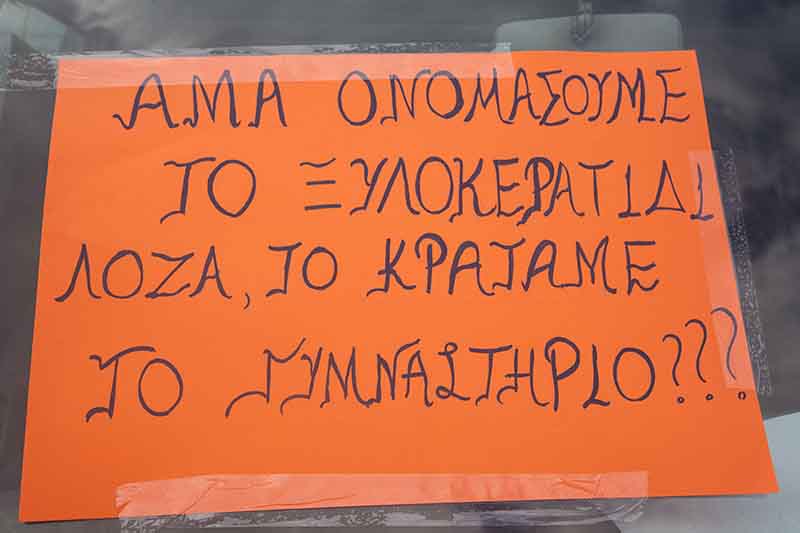 ΑΜΑ ΟΝΟΜΑΣΟΥΜΕ
ΤΟ ΞΥΛΟΚΕΡΑΤΙΔΙ
ΛΟΖΑ, ΤΟ ΚΡΑΤΑΜΕ
ΤΟ ΓΥΜΝΑΣΤΗΡΙΟ???